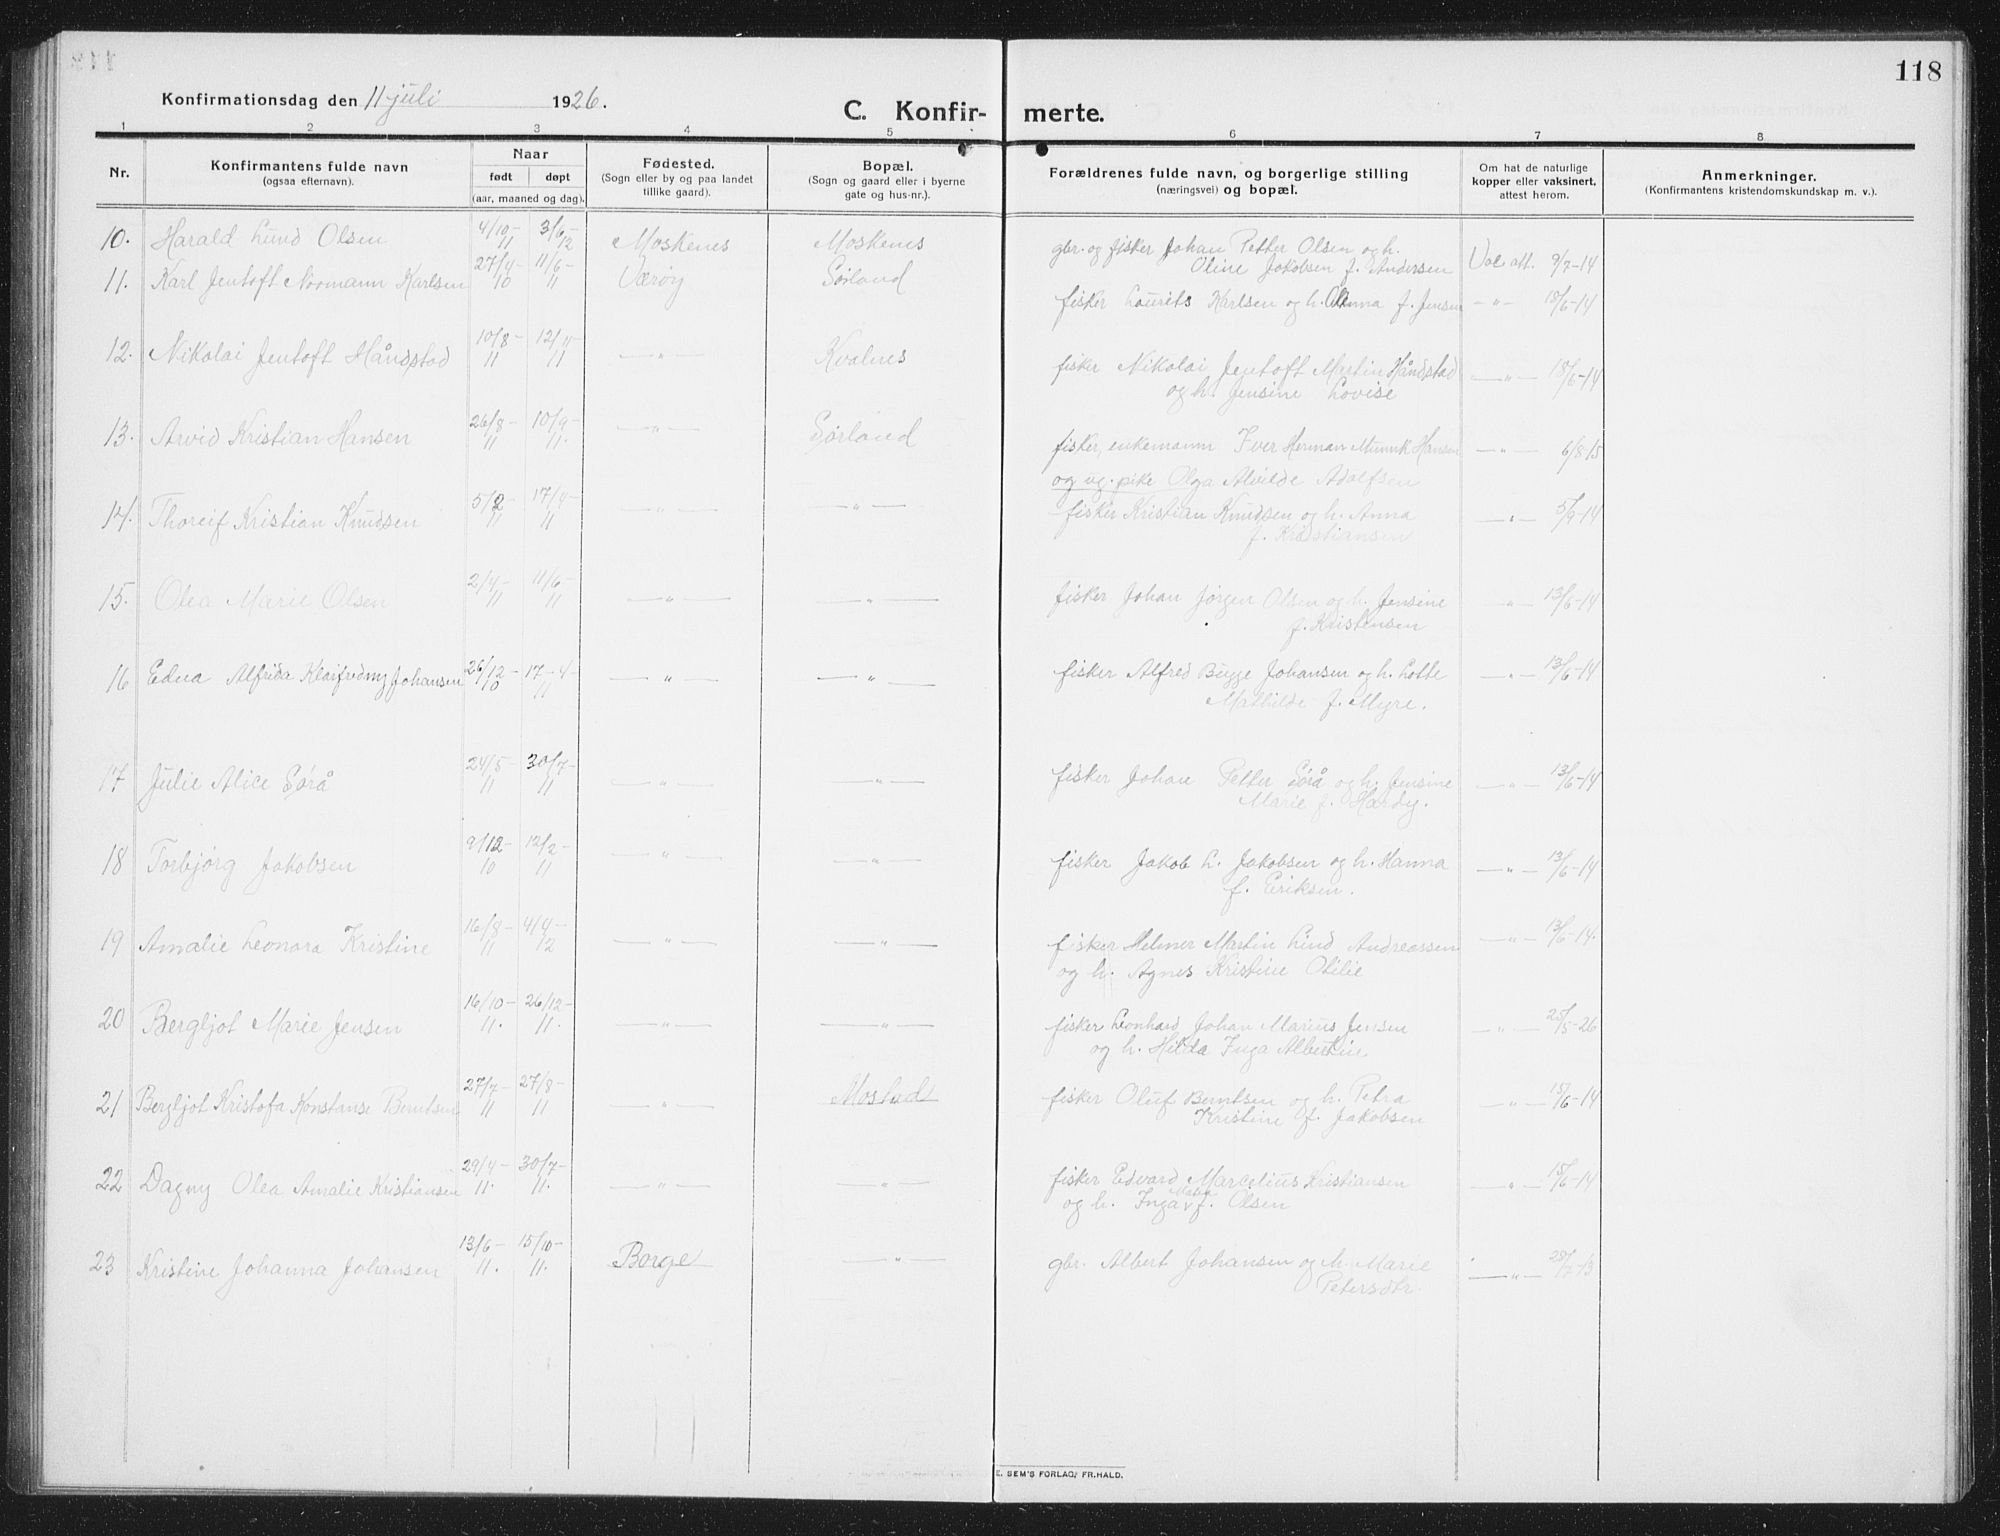 118
Konfirmationsdag den 11 juli 1926.
C. Konfir- merte.
1 2 3 4 5 6 7 8
Nr.
Konfirmantens fulde navn
(ogsaa efternavn).
Naar
født døpt
(aar, maaned og dag).
Fødested.
(Sogn eller by og paa landet
tillike gaard).
Bopæl.
(Sogn og gaard eller i byerne
gate og hus-nr.).
Forældrenes fulde navn, og borgerlige stilling
(næringsvei) og bopæl.
Om hat de naturlige
kopper eller vaksinert,
attest herom.
Anmerkninger.
(Konfirmantens kristendomskundskap m. v.).
10. Harald Lund Olsen 4/10-11 3/6-12 Moskenes Moskenes gbr. og fisker Johan Petter Olsen og h. Vac att. 9/7-14
Oline Jakobsen f. Andersen
11. Karl Jentoft Normann Karlsen 27/4-10 11/6-11 Værøy Sørland
fisker Lourits Karlsen og h. Anna f. Jensen -"- 18/6-14
12. Nikolai Jentoft Håndstad 10/8-11 12/11-11 -"- Kvalnes fisker Nikolai Jentoft Martin Håndstad -"- 18/6-14
og h. Jensine Lovise
13. Arvid Kristian Hansen 26/8-11 10/9-11. -"- Sørland fisker, enkemann Iver Herman Munk Hansen -"- 6/8-15
og ug. pike Olga Alvilde Adolfsen
14. Thoreif Kristian Knudsen 5/2-11 17/4-11 -"- -"- fisker Kristian Knudsen og h. Anna -"- 5/9-14
f. Kristiansen
15. Olea Marie Olsen 2/4-11 11/6-11 -"- -"- fisker Johan Jørgen Olsen og h. Jensine -"- 13/6-14
f. Kristensen
16 Edna Alfrida Johansen 26/12-10 17-4-11 -"- -"- fisker Alfred Bugge Johansen og h. Lotte -"- 13/6-14
Mathilde f. Myre.
17 Julie Alice Sørå 24/5-11 30/7-11 -"- -"- fisker Johan Petter Sørå og h. Jensine -"- 13/6-14
Marie f. Hardy.
18 Torbjørg Jakobsen 9/12-10 12/2-11 -"- -"- fisker Jakob L. Jakobsen og h. Hanna -"- 13/6-14
f. Eriksen.
19 Amalie Leonora Kristine 16/8-11 4/4-12 -"- -"- fisker Helmer Martin Lind Andreassen -"- 13/6-14.
og h. Agnes Kristine Otilie
20 Bergljot Marie Jensen 16/10-11. 26/12-11. -"- -"- fisker Leonhard Johan Marius Jensen -"- 25/5-26
og h. Hilda Inga Albertine
21 Bergljot Kristofa Konstanse Berntsen 27/7-11 27/8-11 -"- Mostad fisker Oluf Berntsen og h. Petra -"- 15/6-14
Kristine f. Jakobsen
22 Dagny Olea Amalie Kristiansen 29/4-11. 30/7-11. -"- -"- fisker Edvard Marcelius Kristiansen -"- 15/6-14
og h. Inga f. Olsen
23 Kristine Johanna Johansen 13/6-11. 15/10-11. Borge -"- gbr. Albert Johansen og h. Marie -"- 28/7-13
Petersdtr.
E. SEM'S FORLAG, FR.HALD.